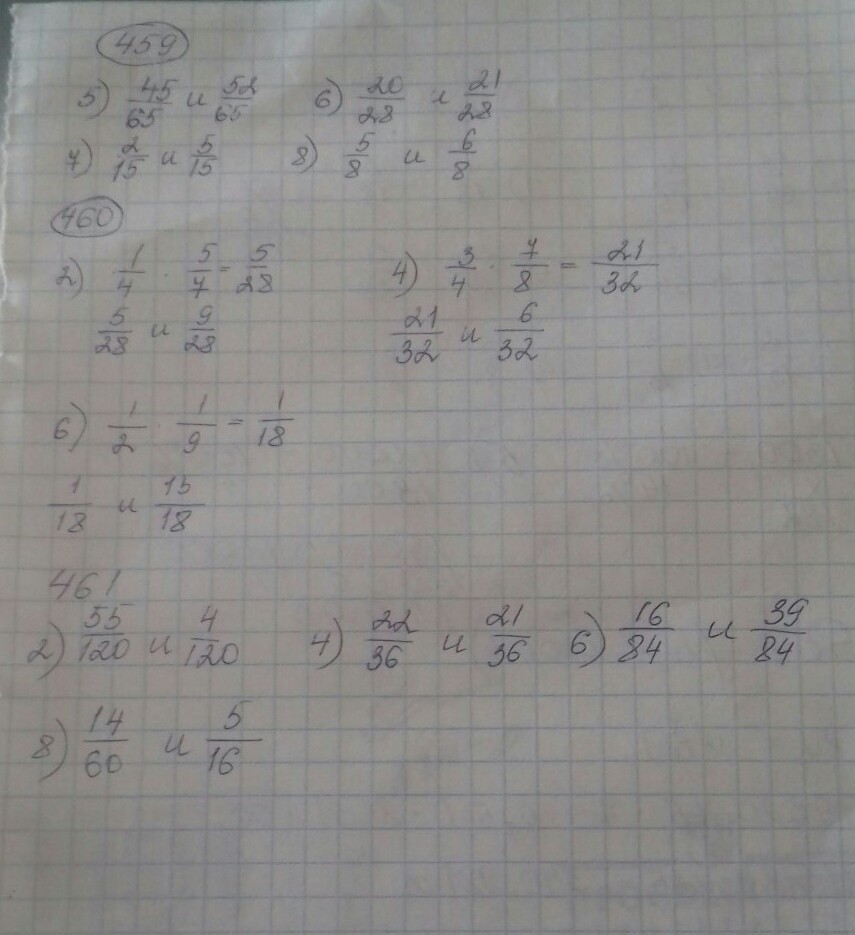 459
5) 45/65 и 52/65 6) 20/28 и 21/28
7) 2/15 и 5/15 8) 5/8 и 6/8
460
2) 1/4 · 5/7 = 5/28 4) 3/4 · 7/8 = 21/32
5/28 и 9/28 21/32 и 6/32
6) 1/2 · 1/9 = 1/18
1/18 и 15/18
461
2) 55/120 и 4/120 4) 22/36 и 21/36 6) 16/84 и 39/84
8) 14/60 и 5/16